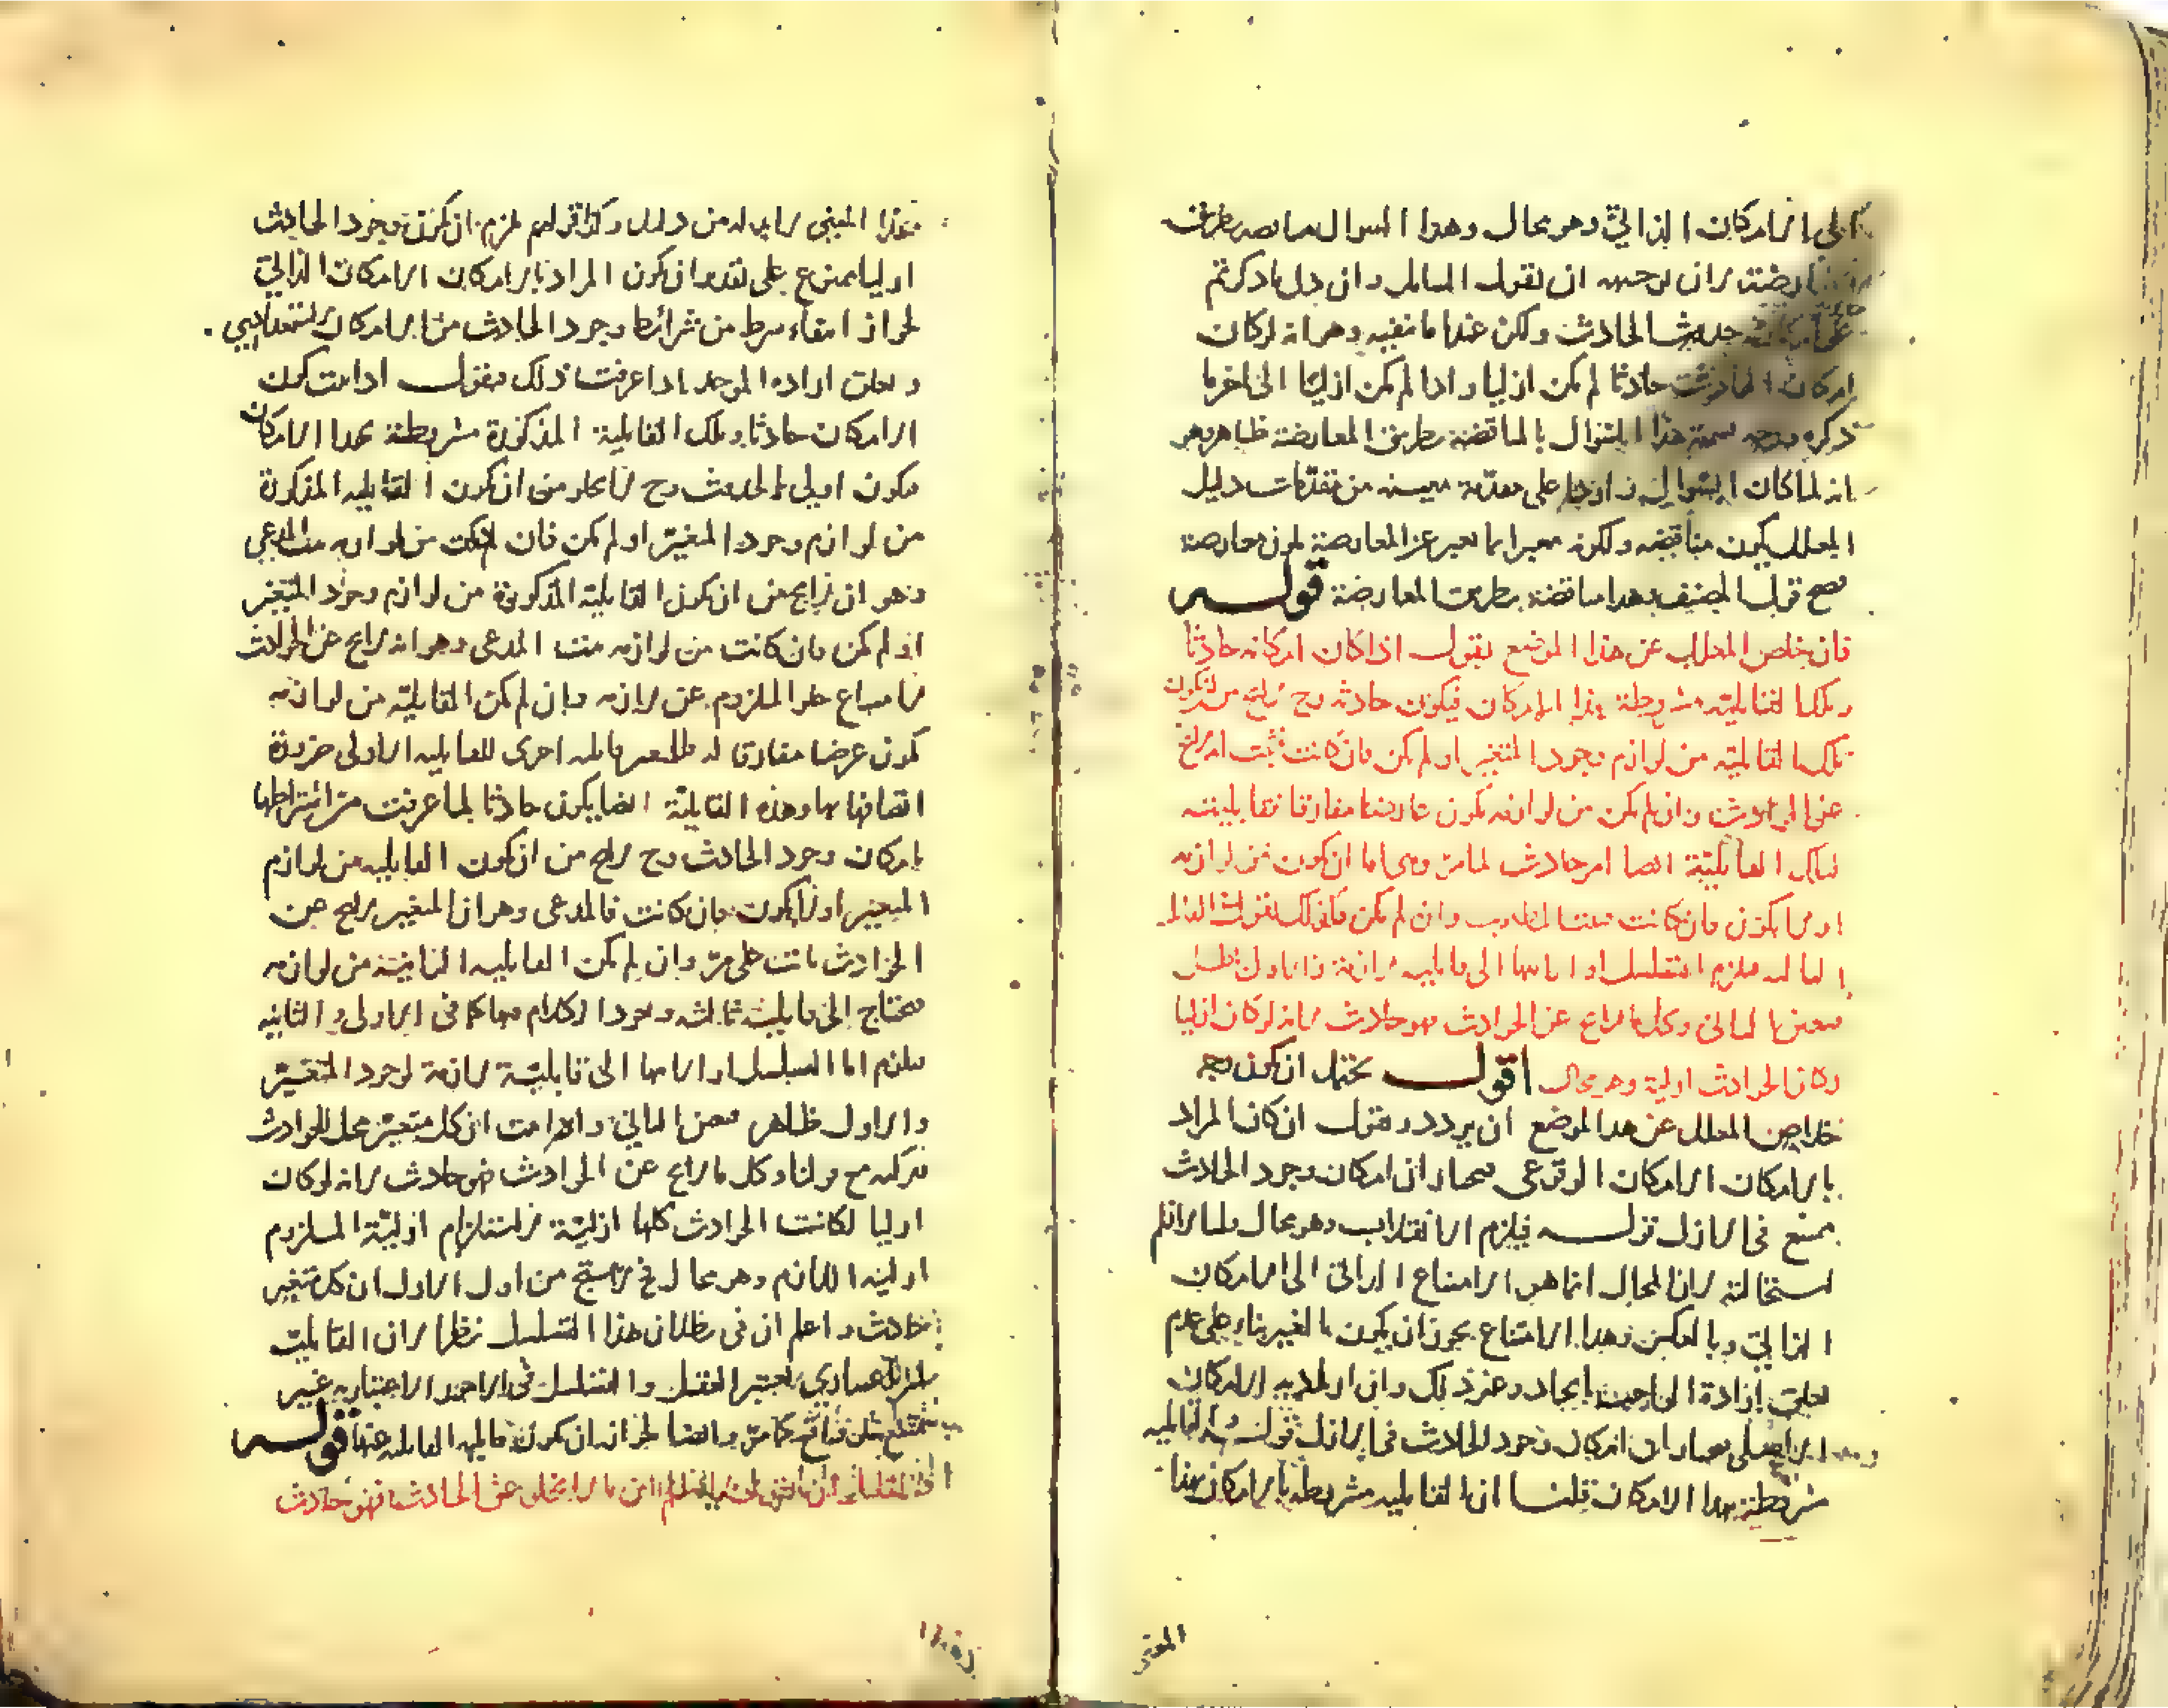 الى الامكان الذاتي وهو محال وهذا السوال مما يصدر بطريق
المعارضة لان توجيهه ان يقول السائل وان دل ما ذكرتم
على حدوث الحادث ولكن عندنا ما ينفيه وهو انه لو كان
امكان الحادث حادثا لم يكن ازليا واذا لم يكن ازليا الى اخر ما
ذكره ووجه تسمية هذا السوال بالمناقضة بطريق المعارضة ظاهر وهو
انه لما كان السوال واردا على مقدمة معينة من مقدمات دليل
المعلل يكون مناقضة ولكونه معبرا بما يعبر عن المعارضة يكون معارضة
فصح قول المصنف هذا مناقضة بطريق المعارضة قوله
فان خلص المعلل عن هذا الموضع بقول اذا كان امكانه حادثا
وتلك القابلية مشروطة بهذا الامكان فيكون حادثة وح لا يخ من ان يكون
تلك القابلية من لوازم وجود المتغير او لم يكن فان كانت ثبت انه لا يخ
عن الحوادث وان لم يكن من لوازمه يكون عارضا مفارقا فقابليته
لتلك القابلية ايضا امر حادث لما مر وهي اما ان يكون من لوازمه
او لا يكون فان كانت ثبت المطلوب وان لم يكن فكذلك نقول في القابلية
الثالثة فيلزم التسلسل او انتهاؤها الى قابلية لازمة والاول باطل
فتعين الثاني وكل ما لا يخ عن الحوادث فهو حادث لانه لو كان ازليا
لكان الحوادث ازلية وهو محال اقول يحتمل ان يكون وجه
خلاص المعلل عن هذا الموضع ان يردد ويقول ان كان المراد
بالامكان الامكان الوقوعي فيختار ان امكان وجود الحادث
يمتنع في الازل قوله فيلزم الانقلاب وهو محال قلنا لا نلم
استحالته لان المحال انما هو الامتناع الذاتي الى الامكان
الذاتي وبالعكس وهذا الامتناع يجوز ان يكون بالغير بناء على عدم
تعلق ارادة الواجب بايجاده وغير ذلك وان اراد به الامكان
شروطة بهذا الامكان قلنا ان القابلية مشروطة بالامكان بهذا
المعنى
بهذا المعنى لا بد له من دليل وكذا قولهم يلزم ان يكون وجود الحادث
ازليا ممنوع على تقدير ان يكون المراد بالامكان الامكان الذاتي
لجواز انتفاء شرط من شرائط وجود الحادث من الامكان الاستعدادي
وتعلق ارادة الموجد اذا عرفت ذلك فنقول اذا ثبت كون
الامكان حادثا وتلك القابلية المذكورة مشروطة بهذا الامكان
فيكون اولى بالحدوث وح لا يخلو من ان يكون القابلية المذكورة
من لوازم وجود المتغير او لم يكن فان كانت من لوازمه ثبت المدعى
وهو ان لا يخ من ان يكون القابلية المذكورة من لوازم وجود المتغير
او لم يكن فان كانت من لوازمه ثبت المدعى وهو انه لا يخ عن الحوادث
لامتناع خلو الملزوم عن لازمه وان لم يكن القابلية من لوازمه
يكون عرضا مفارقا له فللمتغير قابلية اخرى للقابلية الاولى ضرورة
اتصافه بها وهذه القابلية ايضا يكون حادثا لما عرفت من اشتراطها
بامكان وجود الحادث وح لا يخ من ان يكون القابلية من لوازم
المتغير او لا يكون فان كانت فالمدعى وهو ان المتغير لا يخ عن
الحوادث ثابت على ما مر وان لم يكن القابلية الثانية من لوازمه
فيحتاج الى قابلية ثالثة ونعود الكلام فيها كما في الاولى والثانية
فيلزم اما التسلسل او انتهاؤها الى قابلية لازمة لوجود المتغير
والاول ظاهر فتعين الثاني واذا ثبت ان كل متغير محل للحوادث
نركبه مع قولنا وكل ما لا يخ عن الحوادث فهو حادث لانه لو كان
ازليا لكانت الحوادث كلها ازلية لاستلزام ازلية الملزوم
ازلية اللازم وهو محال فح لا ينتج من اول الاول ان كل متغير
حادث واعلم ان في بطلان هذا التسلسل نظرا لان القابلية
امر اعتباري يعتبره العقل والتسلسل في الامور الاعتبارية غير
ممتنع كما مر وايضا لجواز ان يكون قابلية القابلية عينها قوله
ان ما لا يخلو عن الحادث فهو حادث